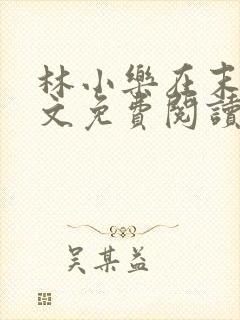 林小樂在末
文免費閱讀
吳某益